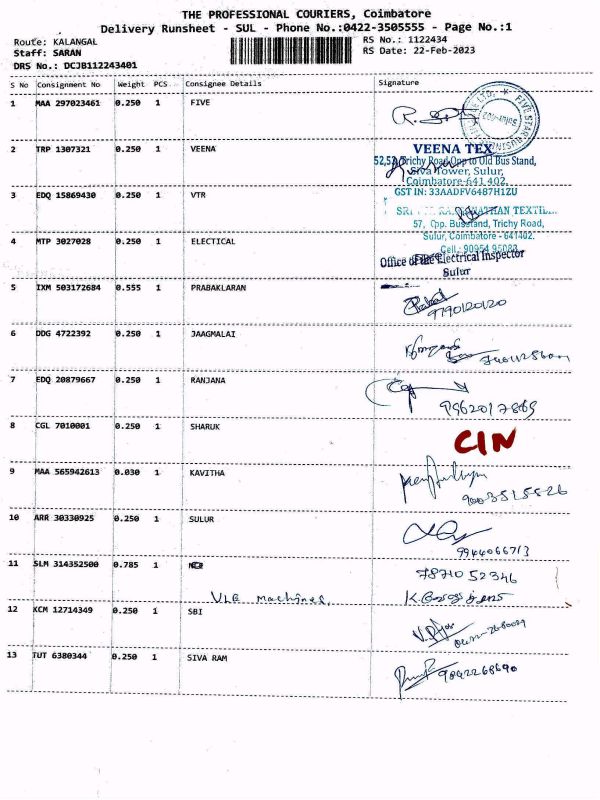 THE PROFESSIONAL COURIERS, Coimbatore
Delivery Runsheet - SUL - Phone No.:0422-3505555 - Page No.:1
Route: KALANGAL
RS No.: 1122434
Staff: SARAN
RS Date: 22-Feb-2023
DRS No.: DCJB112243401
S No Consignment No Weight PCS Consignee Details Signature
1 MAA 297023461 0.250 1 FIVE
2 TRP 1307321 0.250 1 VEENA
VEENA TEX
52,53, Trichy Road, Opp to Old Bus Stand,
Siva Tower, Sulur,
Coimbatore-641 402.
3 EDQ 15869430 0.250 1 VTR
GST IN: 33AADFV6487H1ZU
57, Opp. Busstand, Trichy Road,
Sulur, Coimbatore - 641402.
4 MTP 3027028 0.250 1 ELECTICAL
Cell: 90954 95083
Office of the Electrical Inspector
Sulur
5 IXM 503172684 0.555 1 PRABAKLARAN
9790120120
6 DDG 4722392 0.250 1 JAAGMALAI
7 EDQ 20879667 0.250 1 RANJANA
9962017869
8 CGL 7010001 0.250 1 SHARUK
CIN
9 MAA 565942613 0.030 1 KAVITHA
9003515526
10 ARR 30330925 0.250 1 SULUR
9944066713
11 SLM 314352500 0.785 1
7871052346
VLB Machines.
12 KCM 12714349 0.250 1 SBI
13 TUT 6380344 0.250 1 SIVA RAM
9042268690